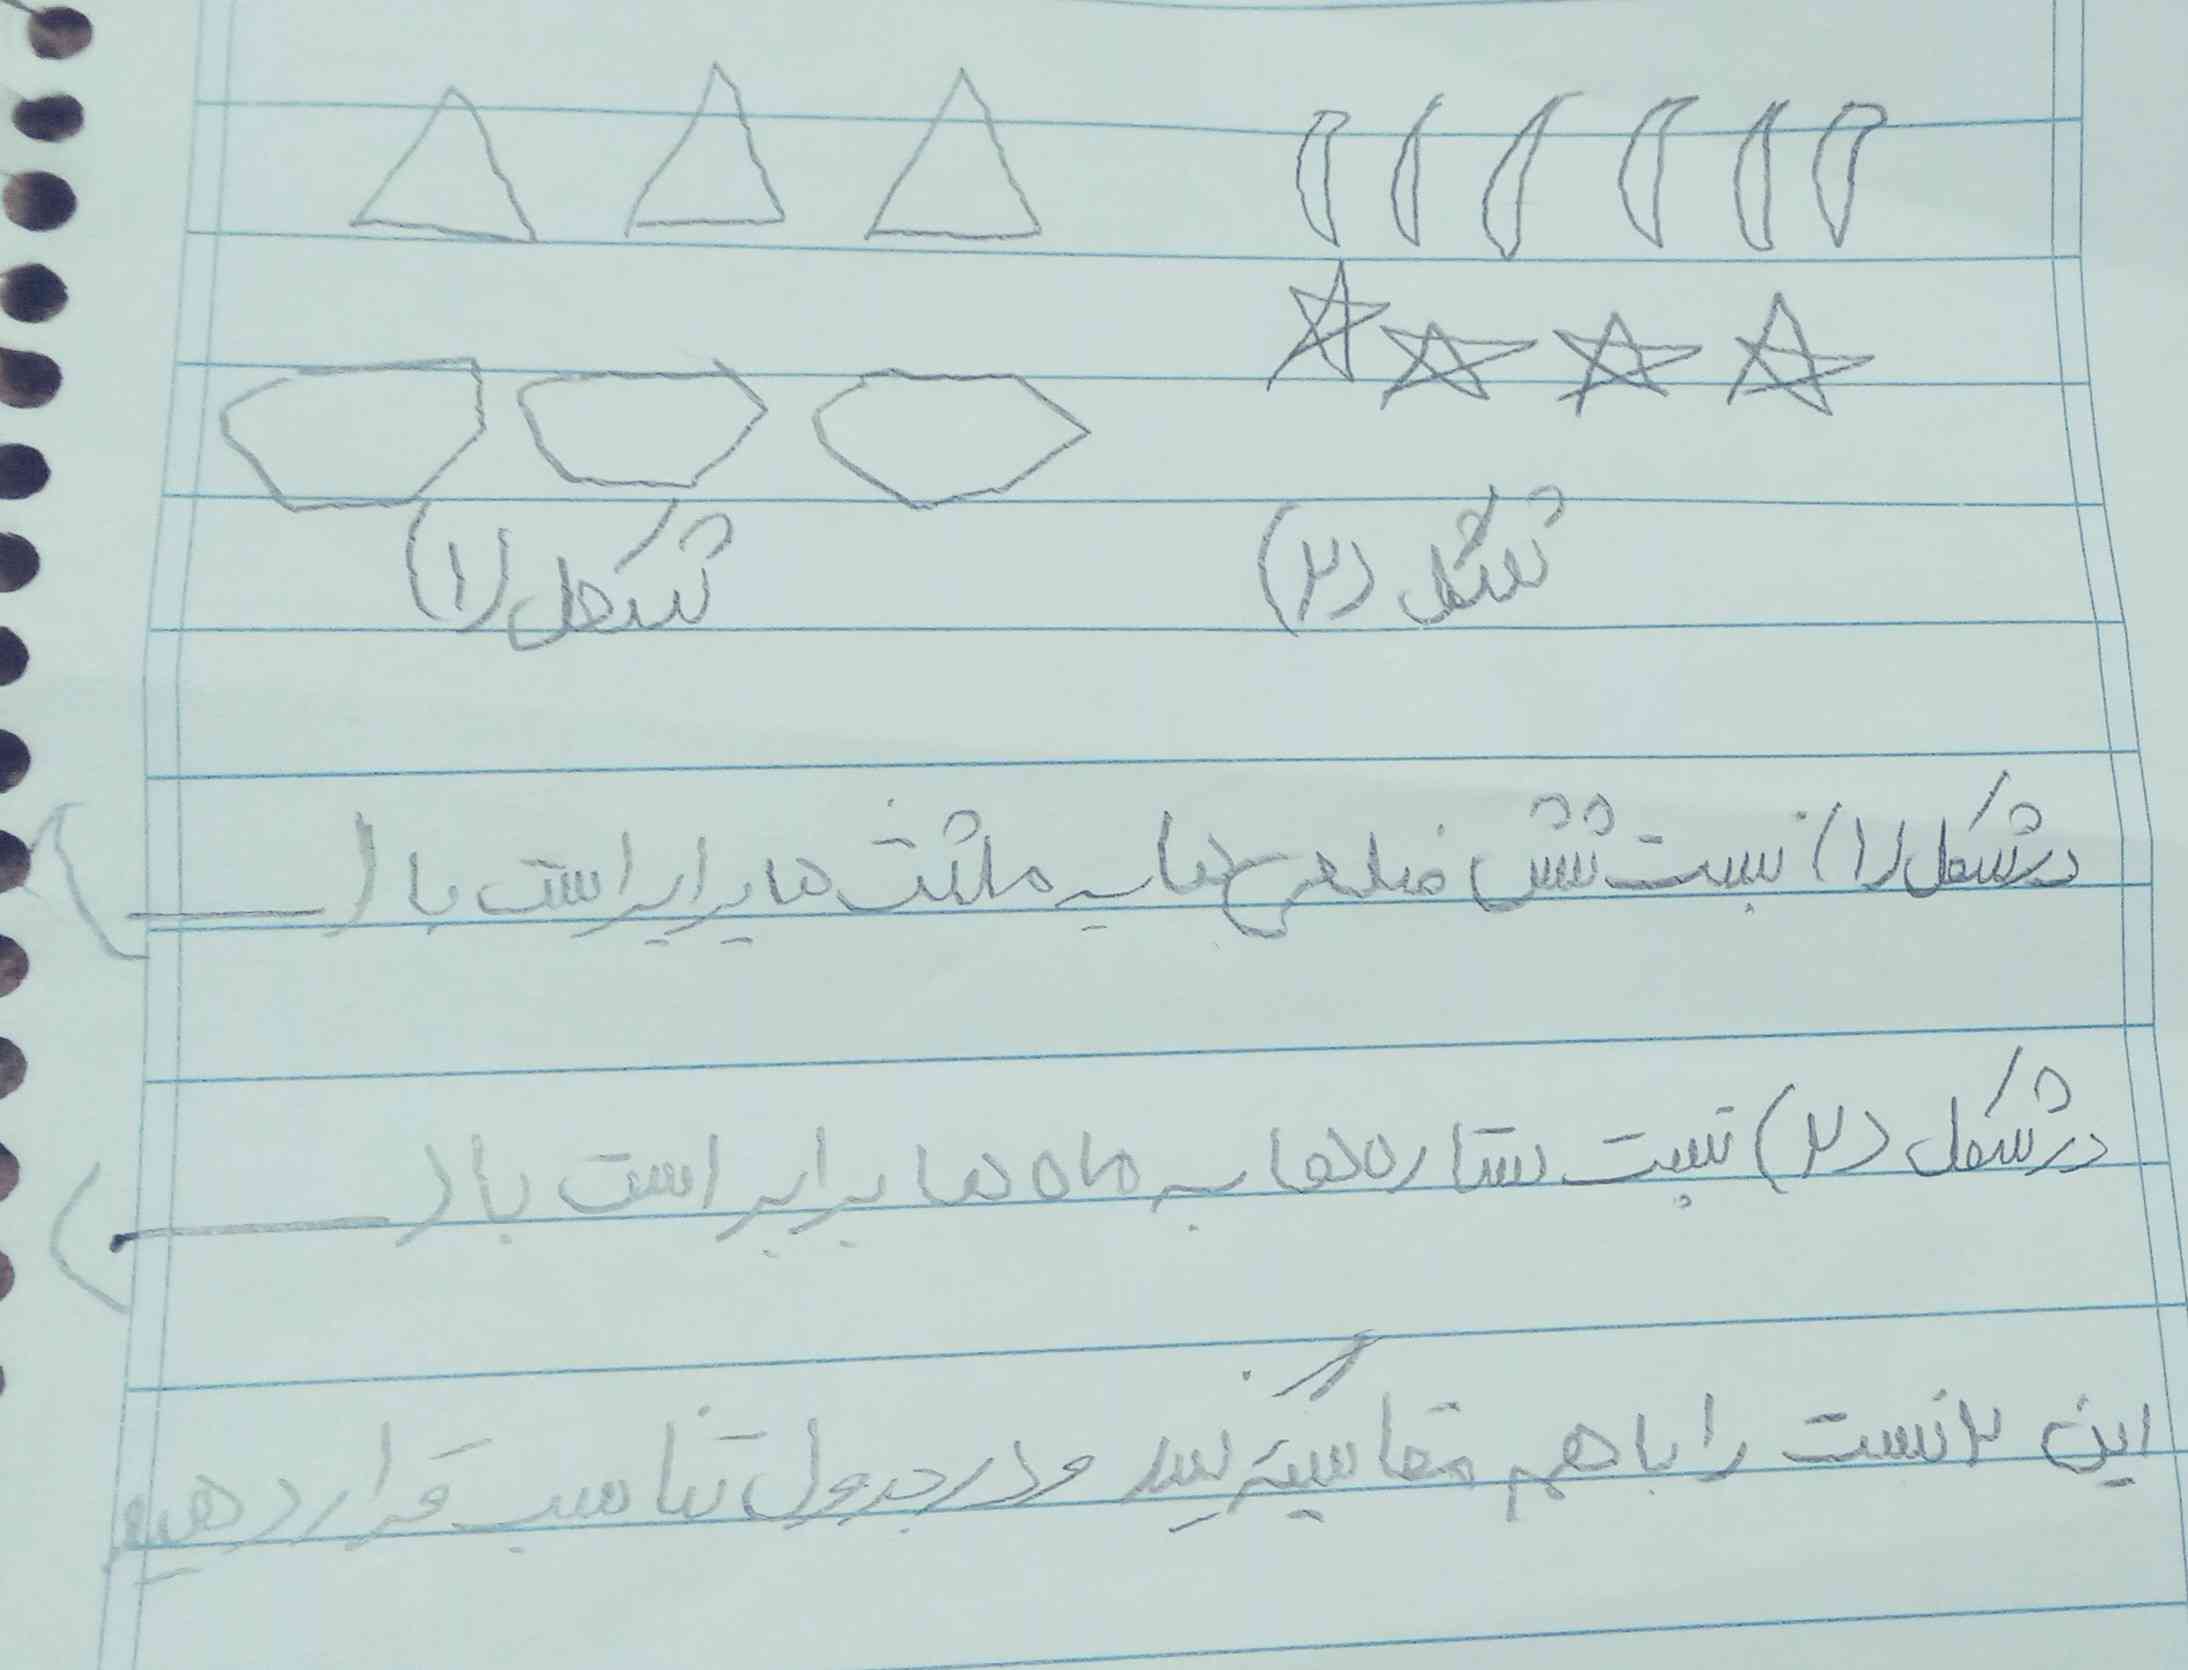 شکل (۱)
شکل (۲)
در شکل (۱) نسبت شش ضلعی ها به مثلث ها برابر است با (______)
در شکل (۲) نسبت ستاره ها به ماه ها برابر است با (______)
این ۲ نسبت را با هم مقایسه کنید و در جدول تناسب قرار دهید